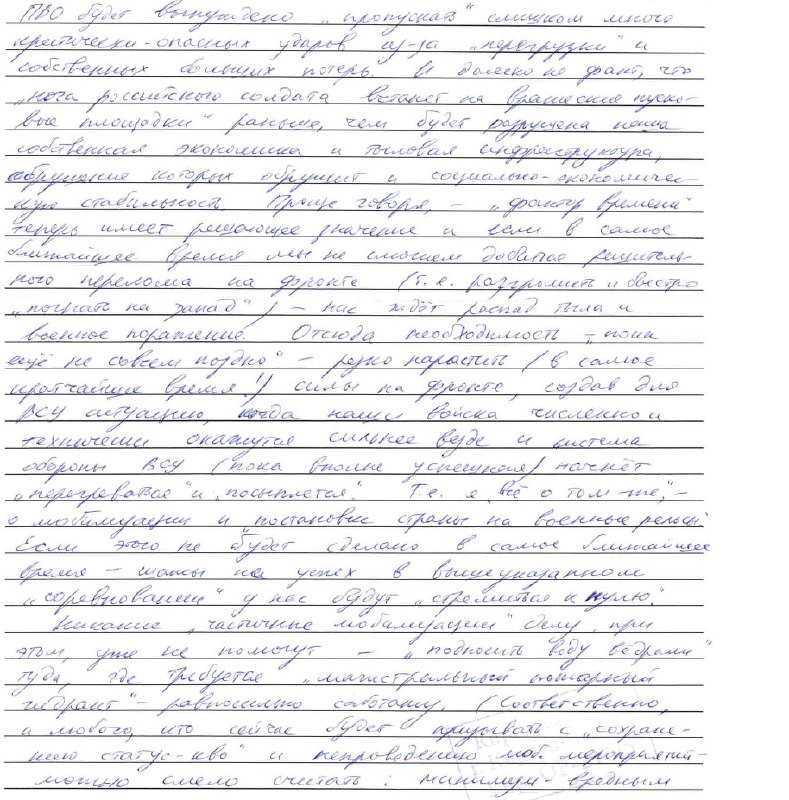 ПВО будет вынуждено „пропускать" слишком много
критически-опасных ударов из-за „перегрузки" и
собственных больших потерь. И далеко не факт, что
„нога российского солдата встанет на вражеские пуско-
вые площадки" раньше, чем будет разрушена наша
собственная экономика и тыловая инфраструктура,
обрушение которых обрушит и социально-экономичес-
кую стабильность. Проще говоря, – „фактор времени"
теперь имеет решающее значение и если в самое
ближайшее время мы не сможем добиться решитель-
ного перелома на фронте (т.е. разгромить и быстро
„погнать на запад") – нас ждёт распад тыла и
военное поражение. Отсюда необходимость – „пока
ещё не совсем поздно" – резко нарастить (в самое
кратчайшее время!) силы на фронте, создав для
ВСУ ситуацию, когда наши войска численно и
технически окажутся сильнее везде и система
обороны ВСУ (пока вполне успешная) начнёт
„перегреваться" и „посыплется". Т.е. я „всё о том-же", –
о мобилизации и „постановке страны на военные рельсы".
Если этого не будет сделано в самое ближайшее
время – шансы на успех в вышеуказанном
„соревновании" у нас будут „стремиться к нулю".
Никакие „частичные мобилизации" делу, при
этом, уже не помогут – „подносить воду вёдрами"
туда, где требуется „магистральный пожарный
гидрант" – равносильно саботажу. (Соответственно,
и любого, кто сейчас будет призывать с „сохране-
нию статус-кво" и непроведению моб. мероприятий –
можно смело считать: минимум – вредным